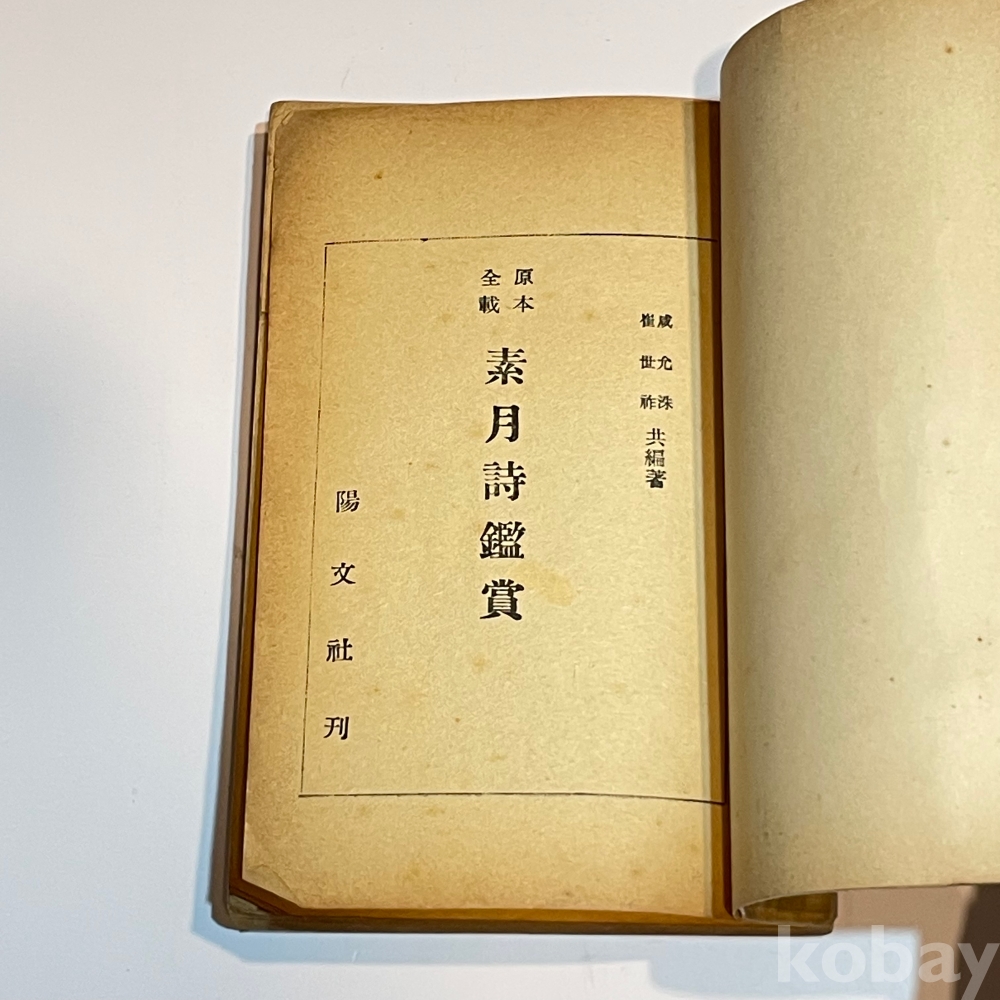 咸允洙
崔世祚
共編著
原本
全載
素月詩鑑賞
陽文社刊
kobay